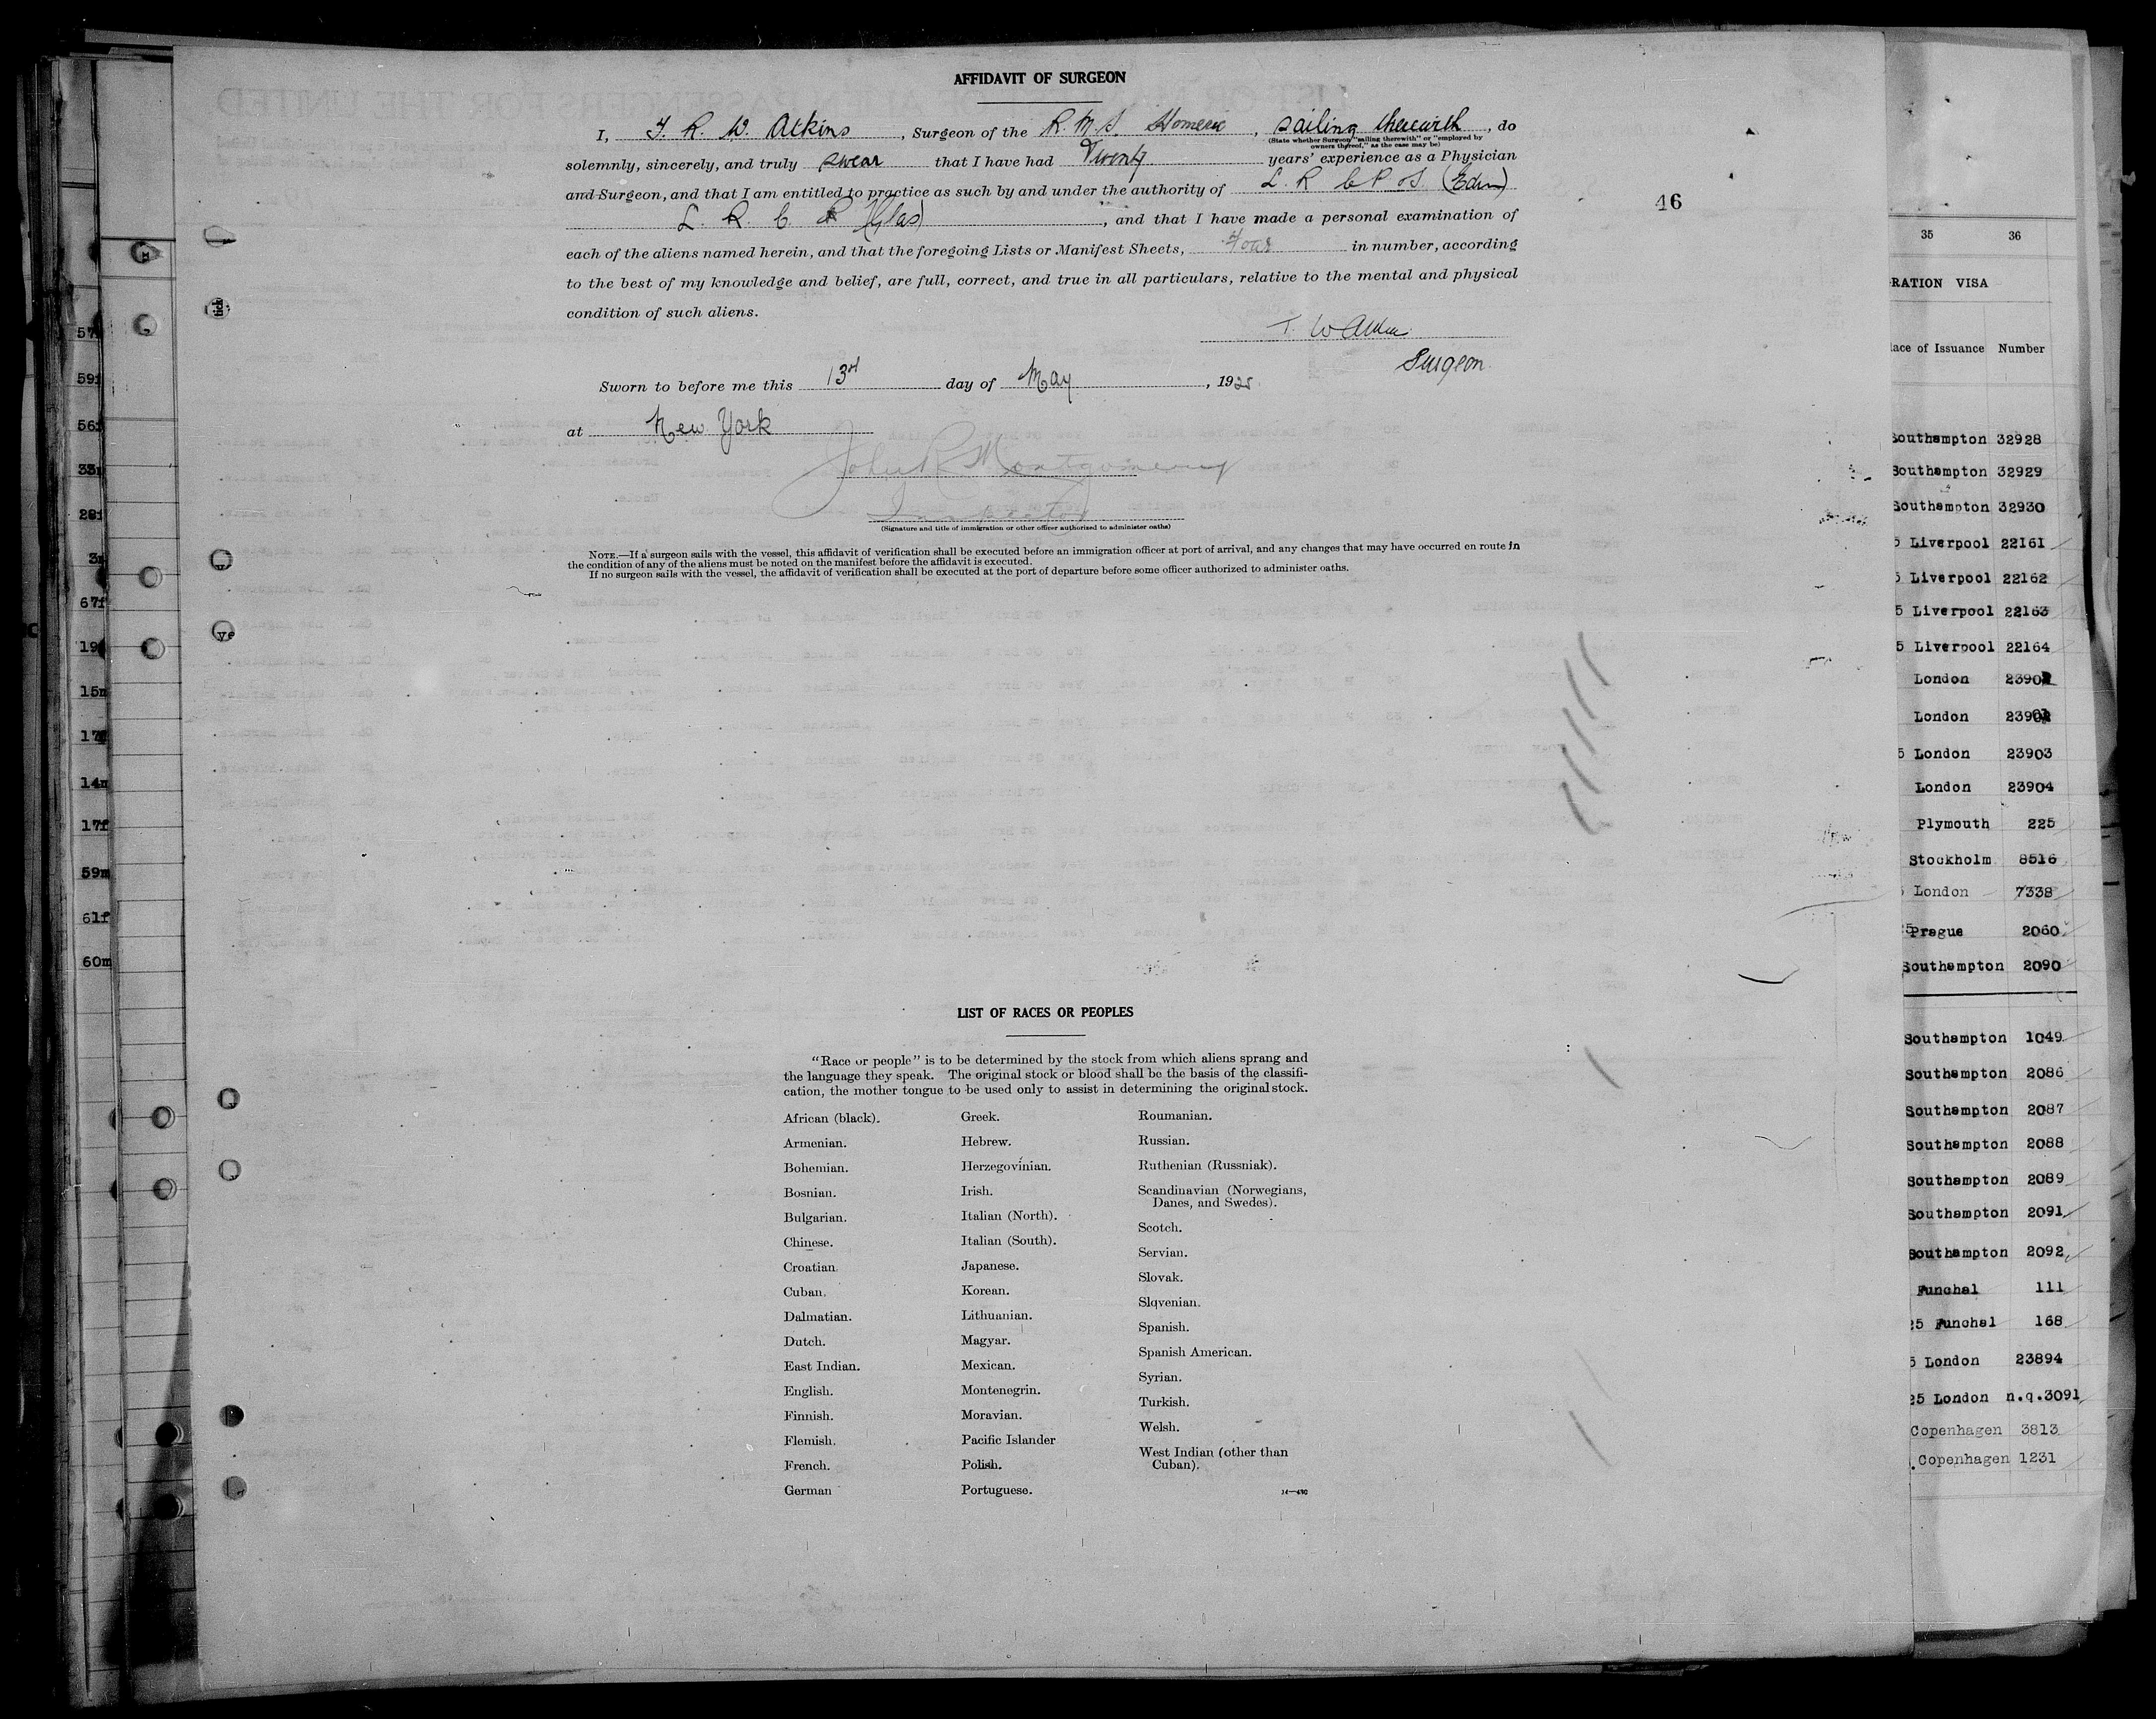 AFFIDAVIT OF SURGEON
I, T. R. W. Atkins, Surgeon of the R.M.S. Homeric, sailing therewith, do
(State whether Surgeon "sailing therewith" or "employed by
owners thereof," as the case may be)
solemnly, sincerely, and truly swear that I have had Twenty years' experience as a Physician
and Surgeon, and that I am entitled to practice as such by and under the authority of L. R. C P. & S. (Edin)
L. R. C. P (Glas), and that I have made a personal examination of
each of the aliens named herein, and that the foregoing Lists or Manifest Sheets, Four in number, according
to the best of my knowledge and belief, are full, correct, and true in all particulars, relative to the mental and physical
condition of such aliens.
Surgeon.
Sworn to before me this 13th day of May, 1925
at New York
John R Montgomery
Inspector
(Signature and title of immigration or other officer authorized to administer oaths)
NOTE.—If a surgeon sails with the vessel, this affidavit of verification shall be executed before an immigration officer at port of arrival, and any changes that may have occurred en route in
the condition of any of the aliens must be noted on the manifest before the affidavit is executed.
If no surgeon sails with the vessel, the affidavit of verification shall be executed at the port of departure before some officer authorized to administer oaths.
46
LIST OF RACES OR PEOPLES
"Race or people" is to be determined by the stock from which aliens sprang and
the language they speak. The original stock or blood shall be the basis of the classifi-
cation, the mother tongue to be used only to assist in determining the original stock.
African (black).
Armenian.
Bohemian.
Bosnian.
Bulgarian.
Chinese.
Croatian.
Cuban.
Dalmatian.
Dutch.
East Indian.
English.
Finnish.
Flemish.
French.
German
Greek.
Hebrew.
Herzegovinian.
Irish.
Italian (North).
Italian (South).
Japanese.
Korean.
Lithuanian.
Magyar.
Mexican.
Montenegrin.
Moravian.
Pacific Islander
Polish.
Portuguese.
Roumanian.
Russian.
Ruthenian (Russniak).
Scandinavian (Norwegians,
Danes, and Swedes).
Scotch.
Servian.
Slovak.
Slovenian.
Spanish.
Spanish American.
Syrian.
Turkish.
Welsh.
West Indian (other than
Cuban).
35 36
RATION VISA
lace of Issuance Number
Southampton 32928
Southampton 32929
Southampton 32930
5 Liverpool 22161
5 Liverpool 22162
5 Liverpool 22163
5 Liverpool 22164
London
London
5 London 23903
London 23904
Plymouth 225
Stockholm 8516
London 7338
5 Prague 2060
Southampton 2090
Southampton 1049
Southampton 2086
Southampton 2087
Southampton 2088
Southampton 2089
Southampton 2091
Southampton 2092
Funchal 111
25 Funchal 168
5 London 23894
25 London n.q.3091
Copenhagen 3813
Copenhagen 1231
57
59f
56f
33m
28f
3m
67f
19f
15m
17f
14m
17f
59m
61f
60m